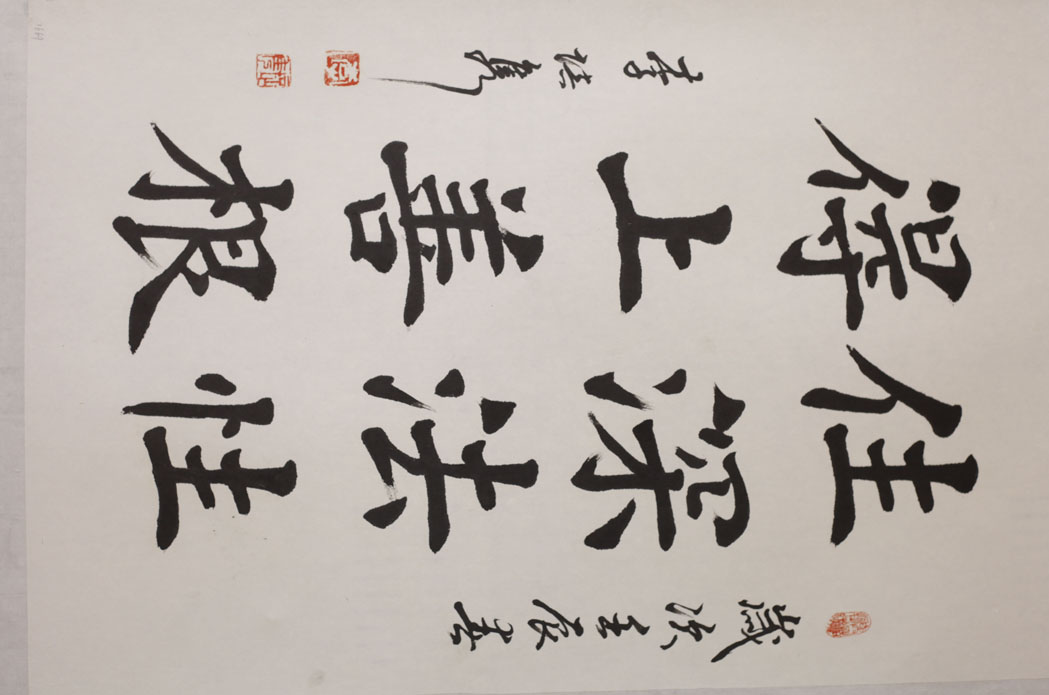 歲次壬辰春
住深法性
得上善根
李